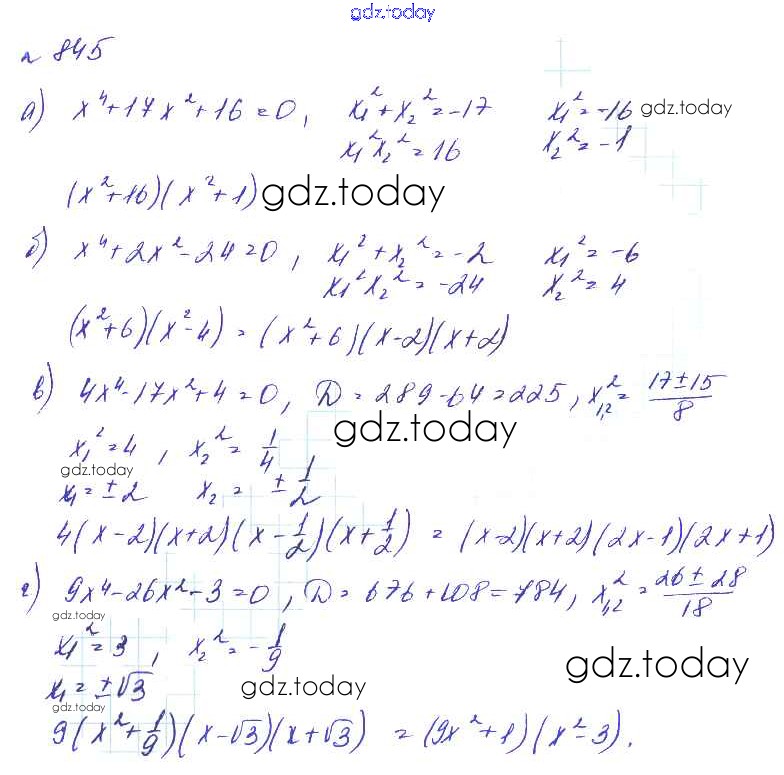 gdz.today
л 845
а) x⁴+17x²+16=0, x₁²+x₂²=-17 x₁²=-16 gdz.today
x₁²x₂²=16 x₂²=-1
(x²+16)(x²+1) gdz.today
б) x⁴+2x²-24=0, x₁²+x₂²=-2 x₁²=-6
x₁²x₂²=-24 x₂²=4
(x²+6)(x²-4)=(x²+6)(x-2)(x+2)
в) 4x⁴-17x²+4=0, D=289-64=225, x₁,₂²=(17±15)/8
x₁²=4, x₂²=1/4 gdz.today
gdz.today
x₁=±2 x₂=±1/2
4(x-2)(x+2)(x-1/2)(x+1/2) = (x-2)(x+2)(2x-1)(2x+1)
г) 9x⁴-26x²-3=0, D=676+108=784, x₁,₂²=(26±28)/18
gdz.today
x₁²=3, x₂²=-1/9
gdz.today
x₁=±√3 gdz.today
gdz.today
9(x²+1/9)(x-√3)(x+√3) = (9x²+1)(x²-3).